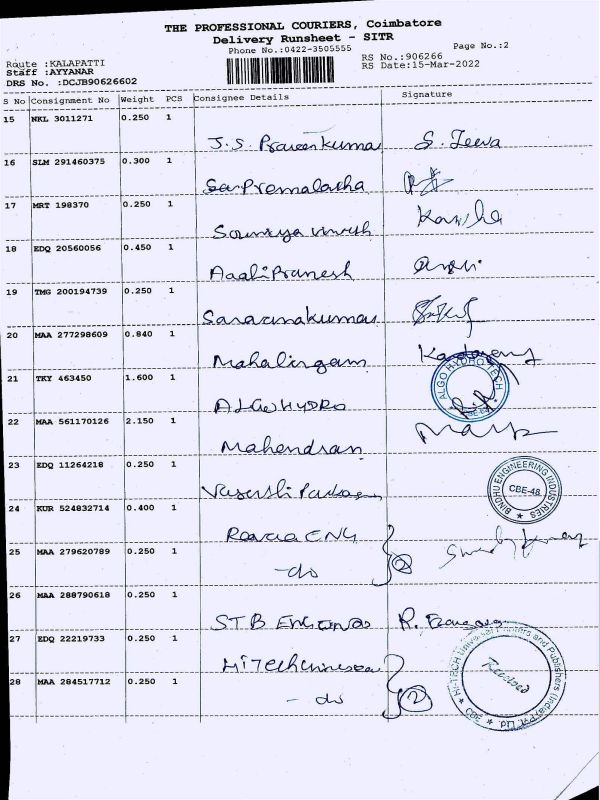 THE PROFESSIONAL COURIERS, Coimbatore
Delivery Runsheet - SITR
Phone No.:0422-3505555
Page No.:2
Route :KALAPATTI
Staff :AYYANAR
DRS No. :DCJB90626602
RS No.:906266
RS Date:15-Mar-2022
S No Consignment No Weight PCS Consignee Details Signature
15 NKL 3011271 0.250 1
J.S. Praveenkumar S. Jeeva
16 SLM 291460375 0.300 1
Sa Premalatha
17 MRT 198370 0.250 1
Sowmya
18 EDQ 20560056 0.450 1
Aadhi Pranesh
19 TMG 200194739 0.250 1
Saravanakumar
20 MAA 277298609 0.840 1
Mahalingam
21 TKY 463450 1.600 1
ALGO HYDRO
ALGO HYDRO TECH
22 MAA 561170126 2.150 1
Mahendran
23 EDQ 11264218 0.250 1
BINDHU ENGINEERING INDUSTRIES
CBE-48.
24 KUR 524832714 0.400 1
ENG
25 MAA 279620789 0.250 1
-do 2
26 MAA 288790618 0.250 1
STB R.
27 EDQ 22219733 0.250 1
28 MAA 284517712 0.250 1
- do 2
Hi-TECH Universal Printers and Publishers (India) Pvt. Ltd. CBE
Received